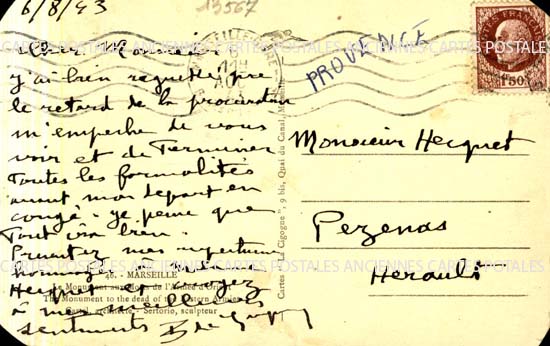 6/8/43
13567
PROVENCE
POSTES FRANÇAISES
1F50
Cher Monsieur
j'ai bien regretté que
le retard de la procuration
m'empêche de vous
voir et de Terminer
Toutes les formalités
avant mon départ en
congé - je pense que
Tout ira bien.
Présentez mes respectueux
hommages à Madame
Hecquet et croyez
à mes meilleurs
sentiments
Monsieur Hecquet
Pezenas
Herault
Cartes "La Cigogne", 9 bis, Quai du Canal, Marseille
MARSEILLE
Le Monument aux Morts de l'Armée d'Orient
The Monument to the dead of the Eastern Armies
architecte - Sertorio, sculpteur
CARTES POSTALES ANCIENNES